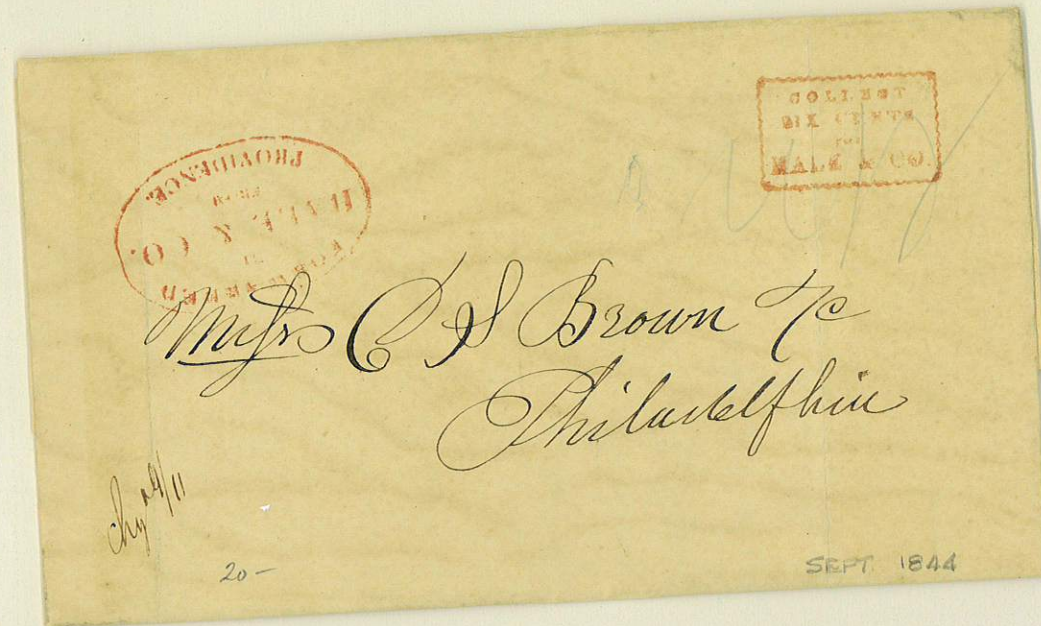 COLLECT
SIX CENTS
FOR
HALE & CO.
FORWARDED
BY
HALE & CO.
FROM
PROVIDENCE.
Messrs C S Brown & Co
Philadelphia
20-
SEPT. 1844